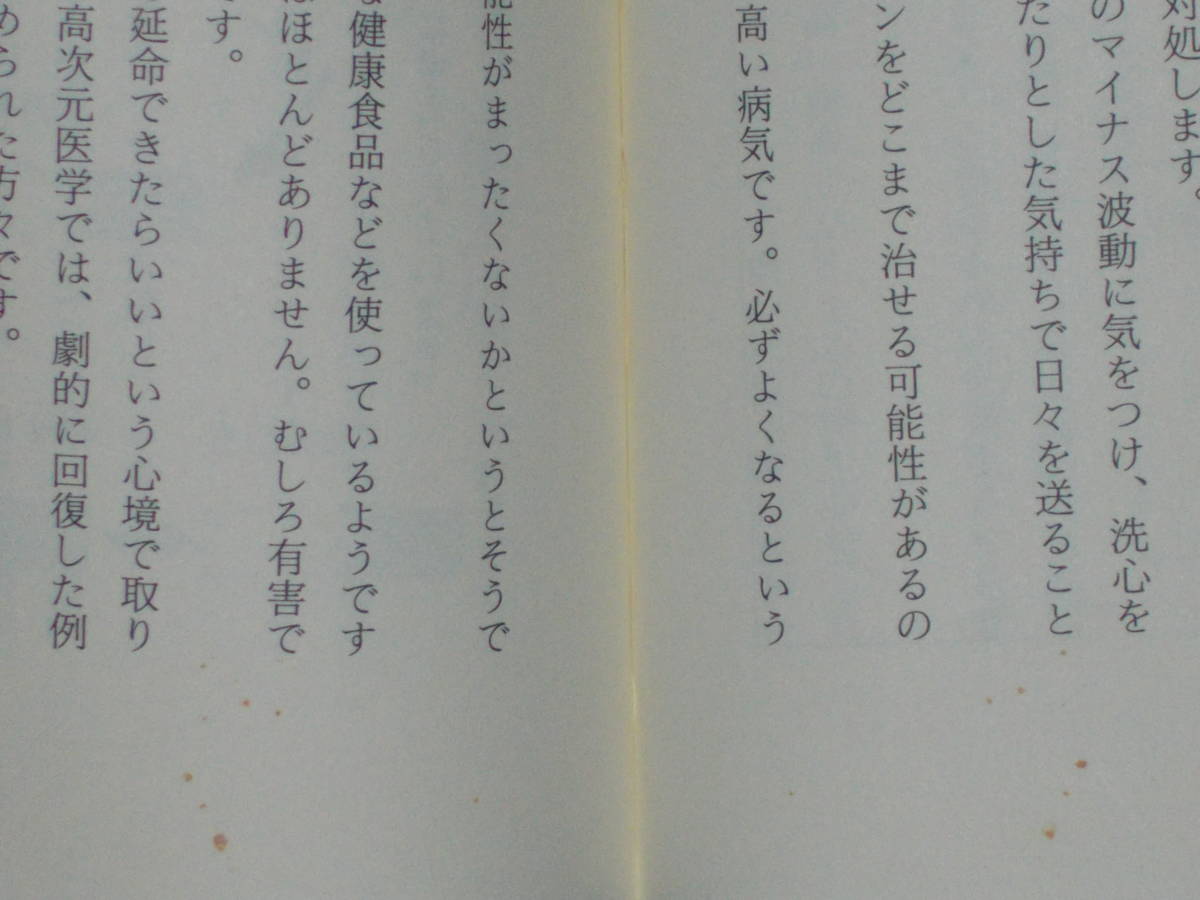 対処します。
のマイナス波動に気をつけ、洗心を
たりとした気持ちで日々を送ること
ンをどこまで治せる可能性があるの
高い病気です。必ずよくなるという
能性がまったくないかというとそうで
な健康食品などを使っているようです
はほとんどありません。むしろ有害で
す。
延命できたらいいという心境で取り
高次元医学では、劇的に回復した例
められた方々です。